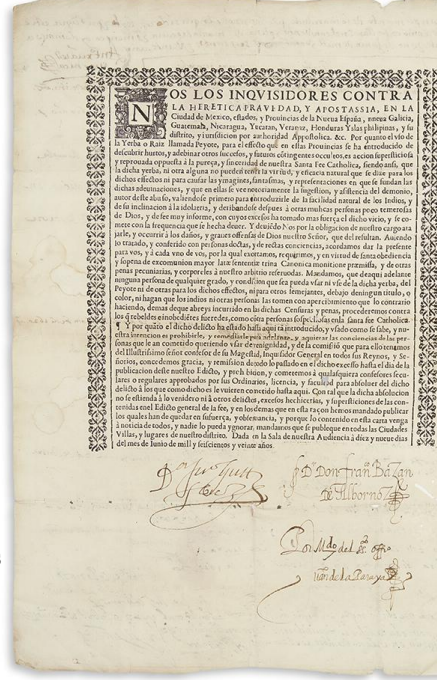 NOS LOS INQVISIDORES CONTRA
LA HERETICA PRAVEDAD, Y APOSTASSIA, EN LA
Ciudad de Mexico, estados, y Prouincias de la Nueua España, nueua Galicia,
Guatemala, Nicaragua, Yucatan, Verapaz, Honduras Yslas philipinas, y su
distrito, y iurisdicion por authoridad Appostolica, &c. Por quanto el vso de
la Yerba o Raiz llamada Peyote, para el efecto que en estas Prouincias se ha introducido de
descubrir hurtos, y adebinar otros sucessos, y futuros contingentes ocultos, es accion supersticiosa
y reprouada oppuesta à la pureça, y sinceridad de nuestra Santa Fee Catholica, siendo ansi, que
la dicha yerba, ni otra alguna no pueden tener la virtud, y eficacia natural que se dize para los
dichos effectos ni para causar las ymagines, fantasmas, y representaciones en que se fundan las
dichas adeuinaciones, y que en ellas se vee notoriamente la sugestion, y assistencia del demonio,
autor deste abuso, valiendose primero para introducirle de la facilidad natural de los Indios, y
de su inclinacion à la idolatria, y deribandose despues à otras muchas personas poco temerosas
de Dios, y de fee muy informe, con cuyos excesos ha tomado mas fuerça el dicho vicio, y se co-
mete con la frequencia que se hecha de ver. Y deuiendo Nos por la obligacion de nuestro cargo ata-
jarle, y ocurrir à los daños, y graues offensas de Dios nuestro Señor, que del resultan. Auiendo
lo tratado, y conferido con personas doctas, y de rectas conciencias, acordamos dar la presente
para vos, y à cada vno de vos, por la qual exortamos, requirimos, y en virtud de santa obediencia
y so pena de excomunion mayor latæ sententiæ trina Canonica monitione præmissa, y de otras
penas pecuniarias, y corporales à nuestro arbitrio reseruadas. Mandamos, que de aqui adelante
ninguna persona de qualquier grado, y condicion que sea pueda vsar ni vse de la dicha yerba, del
Peyote ni de otras para los dichos effectos, ni para otros semejantes, debajo de ningun titulo, o
color, ni hagan que los indios ni otras personas las tomen con apercibimiento que lo contrario
haciendo, demas de que abreys incurrido en las dichas Censuras y penas, procederemos contra
los que rebeldes e inobedientes fueredes, como contra personas sospechosas en la santa fee Catholica.
Y por quanto el dicho delicto ha estado hasta aqui tan introducido, y vsado como se sabe, y nu-
estra intencion es prohibirle, y remediarle para adelante, y aquietar las conciencias de las perso-
nas que le an cometido queriendo vsar de venignidad, y de la comissiõ que para ello tenemos
del Illustrissimo señor confesor de su Magestad, Inquisidor General en todos sus Reynos, y Se-
ñorios, concedemos gracia, y remission de todo lo passado en el dicho excesso hasta el dia de la
publicacion deste nuestro Edicto, y prohibicion, y cometemos à qualesquiera confesores secu-
lares o regulares approbados por sus Ordinarios, licencia, y facultad para absoluer del dicho
delicto à los que del hasta aqui como dicho es le vuieren cometido. Con tal que la dicha absolucion
no se estienda à lo venidero ni à otros delictos, excessos heregias, y supersticiones de las con-
tenidas en el Edicto general de la fee, y en los demas que en esta raçon hemos mandado publicar
los quales han de quedar en su fuerça, y obseruancia, y porque lo contenido en esta carta venga
à noticia de todos, y nadie lo pueda ygnorar, mandamos que se publique en todas las Ciudades
Villas, y lugares de nuestro distrito. Dada en la Sala de nuestra Audiencia à diez y nueue dias
del mes de Junio de mill y seiscientos y veinte años.
D. Don fran.co Bazan
De Albornoz
Por M.do del S.to off.o